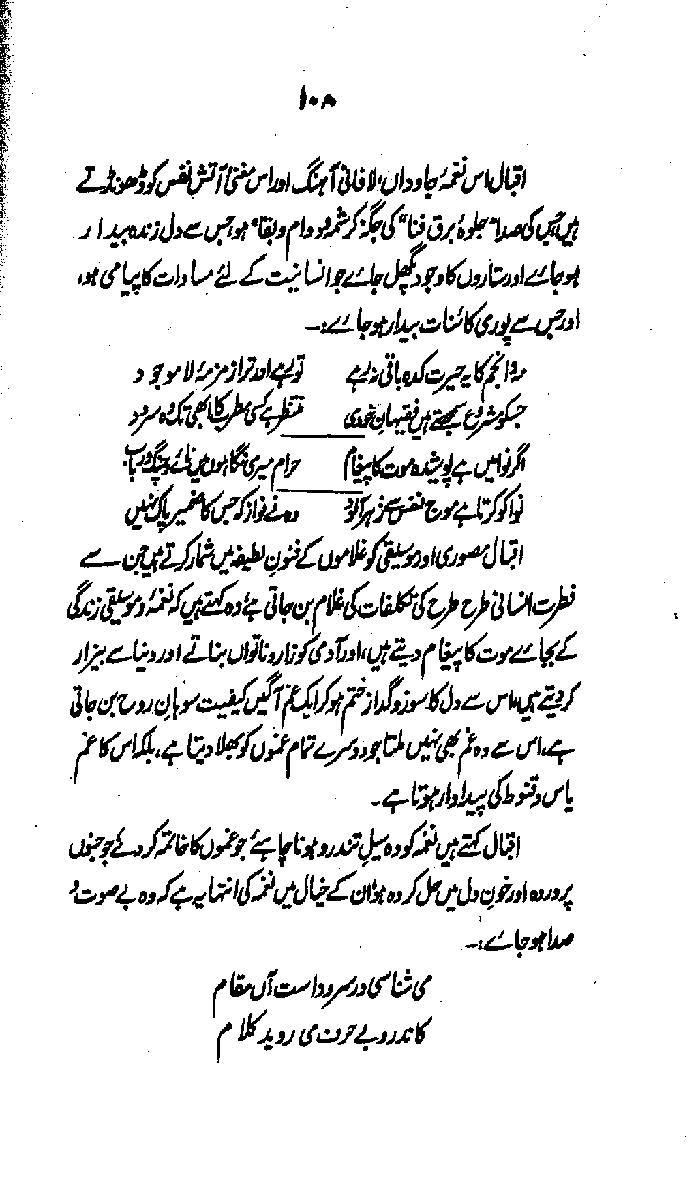 ۱۰۸
اقبال اس نغمۂ جاوداں، لافانی آہنگ اور اس مغنیٔ آتش نفس کو ڈھونڈتے
ہیں جس کی صدا "جلوۂ برق فنا" کی جگہ کرشمۂ دوام و بقا" ہو، جس سے دل زندہ بیدار
ہو جائے اور ستاروں کا وجود پگھل جائے جو انسانیت کے لئے مساوات کا پیامی ہو،
اور جس سے پوری کائنات بیدار ہو جائے:-
مہ و انجم کا یہ حیرت کدہ باقی نہ رہے تو رہے اور ترا زمزمۂ لا موجود
جس کو مشروع سمجھتے ہیں فقیہان خودی منتظر ہے کسی مطرب کا ابھی تک وہ سرود
اگر نوا میں ہے پوشیدہ موت کا پیغام حرام میری نگاہوں میں نائے و چنگ و رباب
نوا کو کرتا ہے موج نفس سے زہر آلود وہ نے نواز کہ جس کا ضمیر پاک نہیں
اقبال مصوری اور موسیقی کو غلاموں کے فنون لطیفہ میں شمار کرتے ہیں جن سے
فطرت انسانی طرح طرح کی تکلفات کی غلام بن جاتی ہے وہ کہتے ہیں کہ نغمہ و موسیقی زندگی
کے بجائے موت کا پیغام دیتے ہیں، اور آدمی کو زار و ناتواں بناتے اور دنیا سے بیزار
کر دیتے ہیں، اس سے دل کا سوز و گداز ختم ہو کر ایک غم آگیں کیفیت سوہان روح بن جاتی
ہے، اس سے وہ غم بھی نہیں ملتا جو دوسرے تمام غموں کو بھلا دیتا ہے، بلکہ اس کا غم
یاس و قنوط کی پیداوار ہوتا ہے۔
اقبال کہتے ہیں نغمہ کو وہ سیل تند رو ہونا چاہئے جو غموں کا خاتمہ کر دے جو جنوں
پروردہ اور خون دل میں حل کردہ ہو، ان کے خیال میں نغمہ کی انتہا یہ ہے کہ وہ بے صوت و
صدا ہو جائے:-
می شناسی در سرود است آں مقام
کاندرو بے حرف می روید کلام